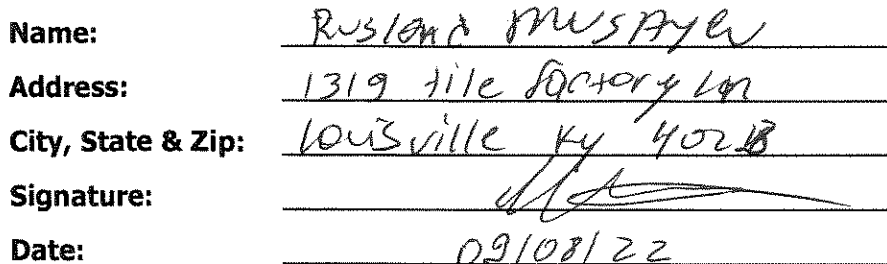 Name: Ruslan Musayev
Address: 1319 tile factory Ln
City, State & Zip: Louisville Ky 40213
Signature:
Date: 09/08/22